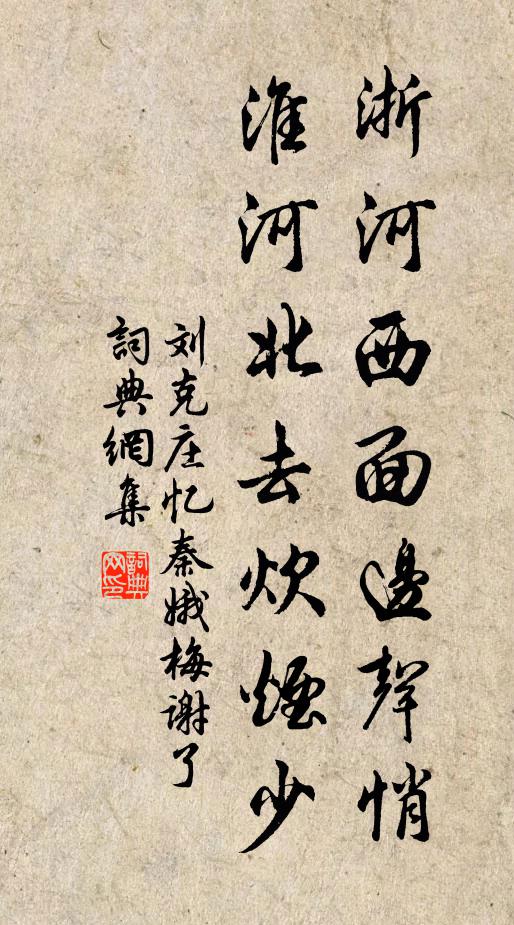 浙河西面邊聲悄
淮河北去炊煙少
刘克庄忆秦娥梅谢了
詞典網集
詞典网印